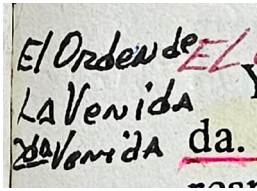 El Orden de EL
LA VENIdA
2da VenidA da.